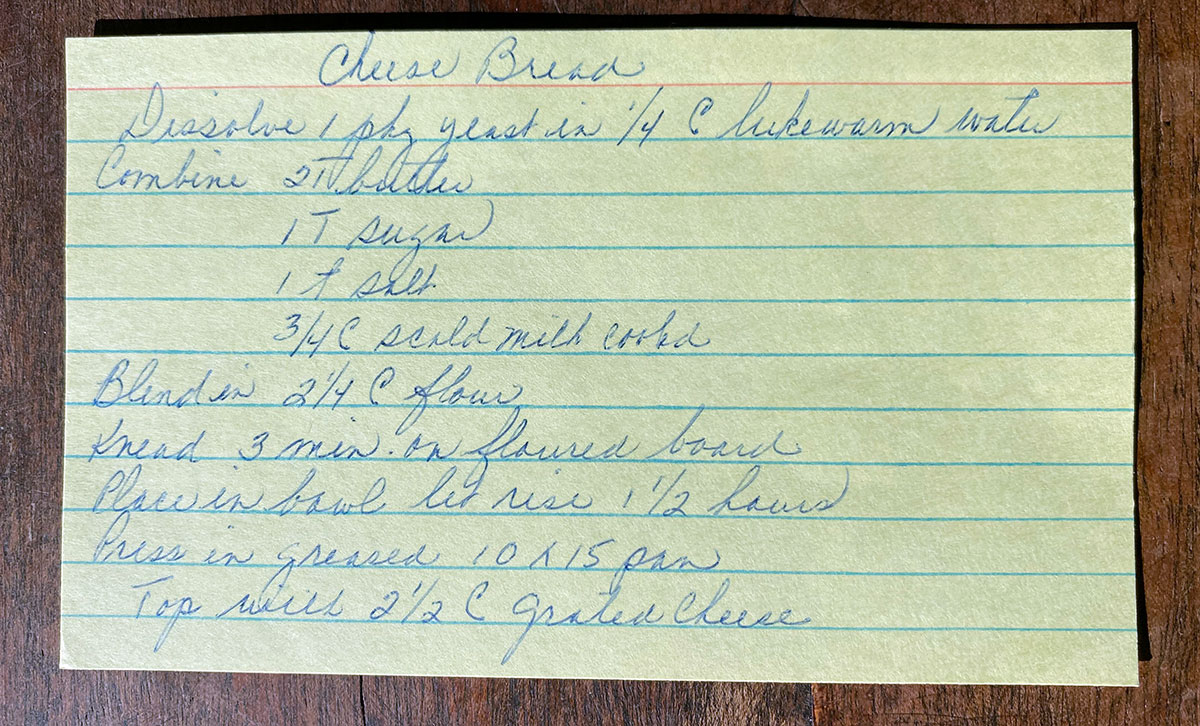 Cheese Bread
Dissolve 1 pkg yeast in 1/4 C lukewarm water
Combine 2T butter
1 T sugar
1 t salt
3/4 C scald milk cooled
Blend in 2 1/4 C flour
Knead 3 min. on floured board
Place in bowl let rise 1 1/2 hours
Press in greased 10 x 15 pan
Top with 2 1/2 C grated cheese